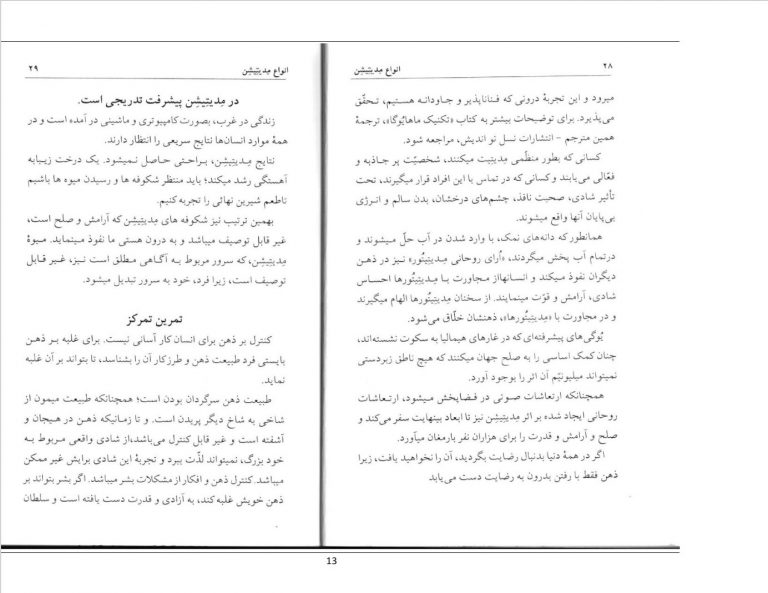 ۲۸
انواع مِدیتِیشِن
میرود و این تجربهٔ درونی که فناناپذیر و جاودانه هستیم، تحقّق
می‌پذیرد. برای توضیحات بیشتر به کتاب «تکنیک ماهایُوگا»، ترجمهٔ
همین مترجم – انتشارات نسل نو اندیش، مراجعه شود.
کسانی که بطور منظّمی مدیتیت میکنند، شخصیّت پر جاذبه و
فعّالی می‌یابند و کسانی که در تماس با این افراد قرار میگیرند، تحت
تأثیر شادی، صحبت نافذ، چشم‌های درخشان، بدن سالم و انرژی
بی‌پایان آنها واقع میشوند.
همانطور که دانه‌های نمک، با وارد شدن در آب حلّ میشوند و
درتمام آب پخش میگردند، «اُرای روحانی مِدیتِیتُور» نیز در ذهن
دیگران نفوذ میکند و انسانهااز مجاورت بـا مِدیتِیتُورها احساس
شادی، آرامش و قوّت مینمایند. از سخنان مِدیتِیتُورها الهام میگیرند
و در مجاورت با «مِدیتِیتُورها»، ذهنشان خلّاق می‌شود.
یُوگی‌های پیشرفته‌ای که در غارهای هیمالیا به سکوت نشسته‌اند،
چنان کمک اساسی را به صلح جهان میکنند که هیچ ناطق زبردستی
نمیتواند میلیونیُم آن اثر را بوجود آورد.
همچنانکه ارتعاشات صوتی در فضاپخش میشود، ارتعاشات
روحانی ایجاد شده بر اثر مِدیتِیشِن نیز تا ابعاد بینهایت سفر می‌کند و
صلح و آرامش و قدرت را برای هزاران نفر بارمغان میآورد.
اگر در همهٔ دنیا بدنبال رضایت بگردید، آن را نخواهید یافت، زیرا
ذهن فقط با رفتن بدرون به رضایت دست می‌یابد
انواع مِدیتِیشِن
۲۹
در مِدیتِیشِن پیشرفت تدریجی است.
زندگی در غرب، بصورت کامپیوتری و ماشینی در آمده است و در
همهٔ موارد انسان‌ها نتایج سریعی را انتظار دارند.
نتایج مِدیتِیشِن، براحتی حاصل نمیشود. یک درخت زیبابه
آهستگی رشد میکند؛ باید منتظر شکوفه ها و رسیدن میوه ها باشیم
تاطعم شیرین نهائی را تجربه کنیم.
بهمین ترتیب نیز شکوفه های مِدیتِیشِن که آرامش و صلح است،
غیر قابل توصیف میباشد و به درون هستی ما نفوذ مینماید. میوهٔ
مِدیتِیشِن، که سرور مربوط به آگاهی مطلق است نیز، غیر قابل
توصیف است، زیرا فرد، خود به سرور تبدیل میشود.
تمرین تمرکز
کنترل بر ذهن برای انسان کار آسانی نیست. برای غلبه بر ذهن
بایستی فرد طبیعت ذهن و طرزکار آن را بشناسد، تا بتواند بر آن غلبه
نماید.
طبیعت ذهن سرگردان بودن است؛ همچنانکه طبیعت میمون از
شاخی به شاخ دیگر پریدن است. و تا زمانیکه ذهن در هیجان و
آشفته است و غیر قابل کنترل می‌باشد،از شادی واقعی مربوط به
خود بزرگ، نمیتواند لذّت ببرد و تجربهٔ این شادی برایش غیر ممکن
میباشد.کنترل ذهن و افکار از مشکلات بشر میباشد. اگر بشر بتواند بر
ذهن خویش غلبه کند، به آزادی و قدرت دست یافته است و سلطان
13